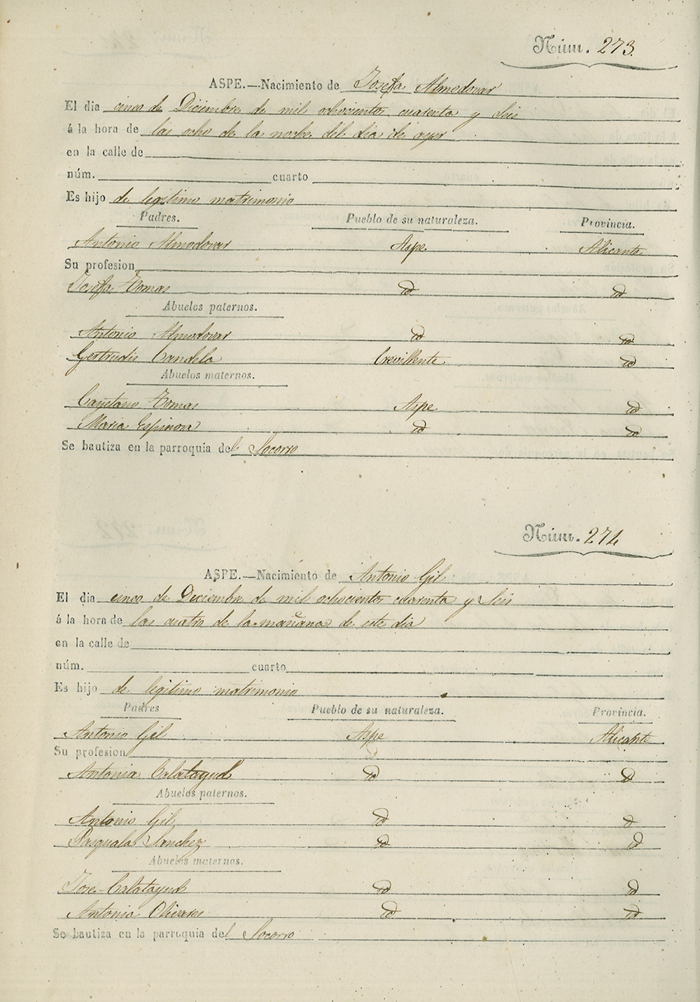 Núm. 273
ASPE.—Nacimiento de Josefa Almodovar
El dia cinco de Diciembre de mil ochocientos cuarenta y seis
á la hora de las ocho de la noche del dia de ayer
en la calle de
núm. cuarto
Es hijo de legitimo matrimonio
Padres. Pueblo de su naturaleza. Provincia.
Antonio Almodovar Aspe Alicante
Su profesion
Josefa Tomas id id
Abuelos paternos.
Antonio Almodovar id id
Gertrudis Candela Crevillente id
Abuelos maternos.
Cayetano Tomas Aspe id
Maria Espinosa id id
Se bautiza en la parroquia del Socorro
Núm. 274
ASPE.—Nacimiento de Antonio Gil
El dia cinco de Diciembre de mil ochocientos cuarenta y seis
á la hora de las cuatro de la mañana de este dia
en la calle de
núm. cuarto
Es hijo de legitimo matrimonio
Padres Pueblo de su naturaleza. Provincia.
Antonio Gil Aspe Alicante
Su profesion
Antonia Calatayud id id
Abuelos paternos.
Antonio Gil id id
Pasquala Sanchez id id
Abuelos maternos.
Jose Calatayud id id
Antonia Olivares id id
Se bautiza en la parroquia del Socorro